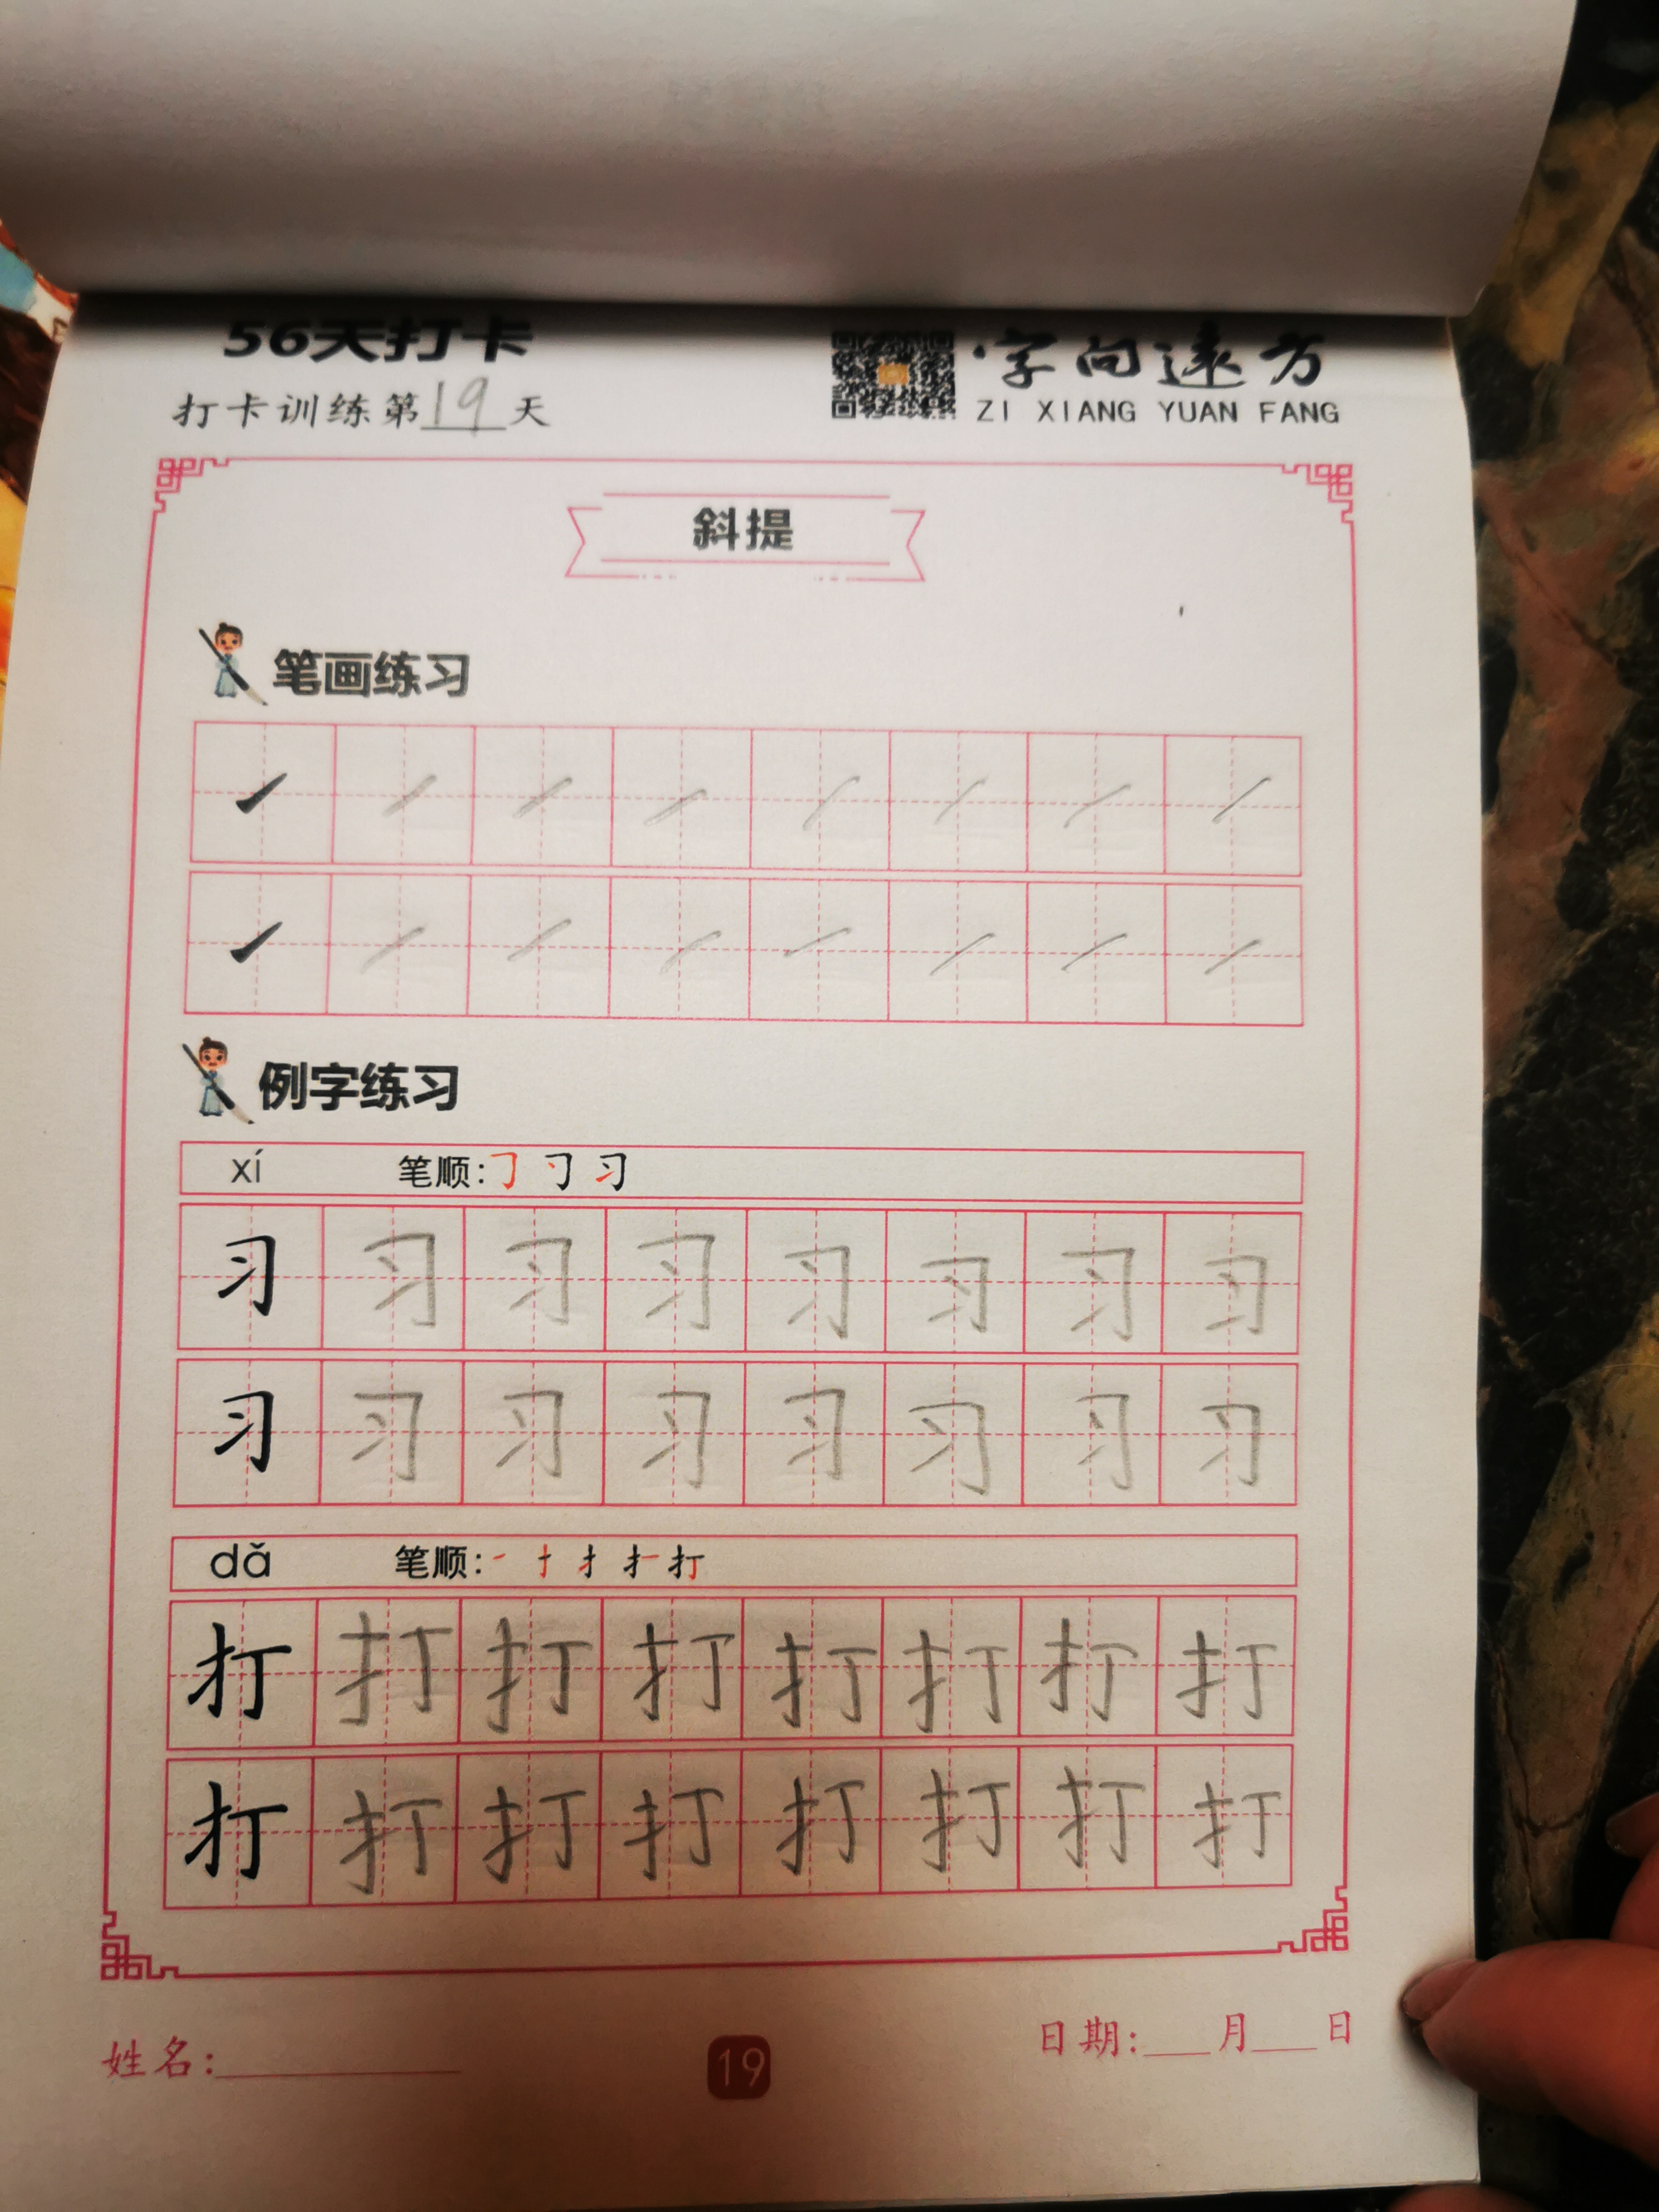 56天打卡
打卡训练第19天
字向远方
ZI XIANG YUAN FANG
斜提
笔画练习
例字练习
xí 笔顺:㇆ 习 习
习 习 习 习 习 习 习 习
习 习 习 习 习 习 习 习
dǎ 笔顺:一 扌 扌 扌 打
打 打 打 打 打 打 打 打
打 打 打 打 打 打 打 打
姓名:
19
日期:___月___日